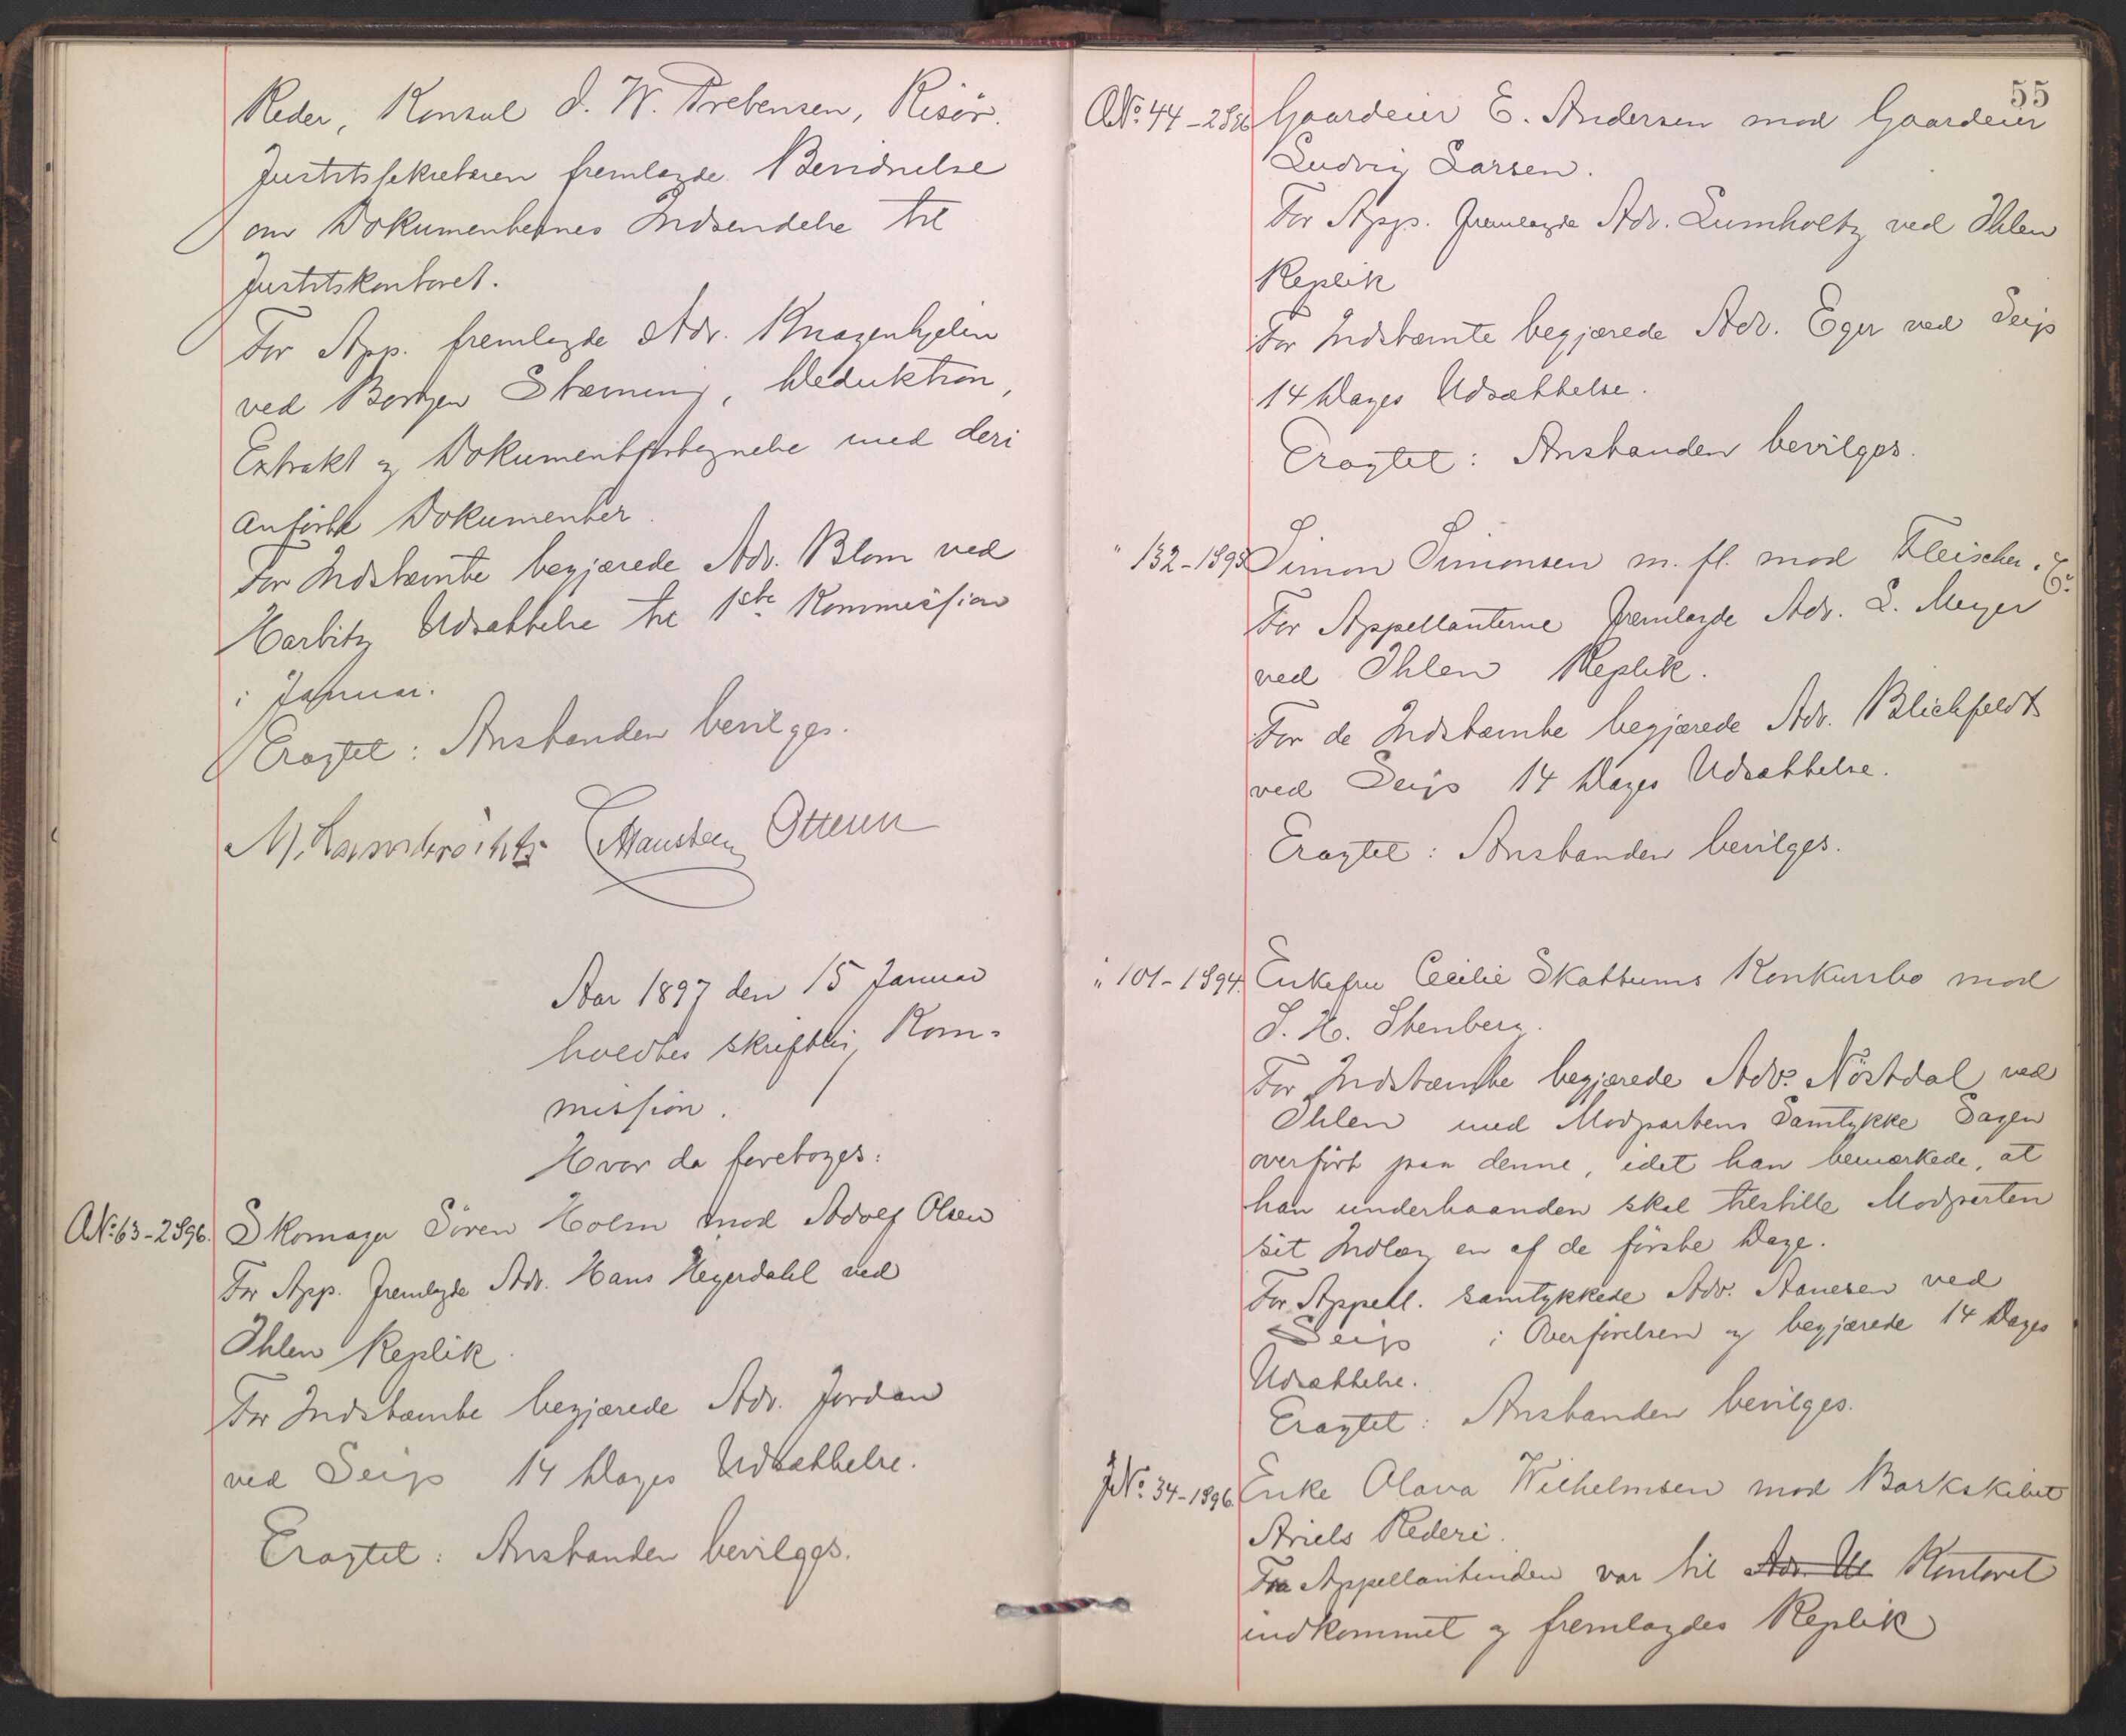 Reder, Konsul J. W. Prebensen, Risör.
Justitssekretæren fremlagde Bevidnelse
om Dokumenternes Indsendelse til
Justitskontoret.
For App. fremlagde Adv. Knagenhjelm
ved Bortgen Stævning, Deduktion,
Extrakt og Dokumentfortegnelse med deri
anførte Dokumenter.
For Indstævnte begjærede Adv. Blom ved
Harbitz Udsættelse til 1ste Kommission
i Januar.
Eragtet: Anstanden bevilges.
M. Lambrechts Mansteen Ottesen
Aar 1897 den 15 Januar
holdtes skriftlig Kom-
mission.
Hvor da foretoges:
A No. 63-2896. Skomager Sören Holm mod Adolf Olsen
For App. fremlagde Adv. Hans Heyerdahl ved
Ihlen Replik.
For Indstævnte begjærede Adv. Jordan
ved Seip 14 Dages Udsættelse.
Eragtet: Anstanden bevilges.
55
A No. 44-2896 Gaardeier E. Andersen mod Gaardeier
Ludvig Larsen.
For App. fremlagde Adv. Lumholtz ved Ihlen
Replik
For Indstævnte begjærede Adv. Eger ved Seip
14 Dages Udsættelse.
Eragtet: Anstanden bevilges.
" 132-1893 Simon Simonsen m. fl. mod Fleischer & Co.
For Appellanterne fremlagde Adv. L. Meyer
ved Ihlen Replik.
For de Indstævnte begjærede Adv. Blichfeldt
ved Seip 14 Dages Udsættelse.
Eragtet: Anstanden bevilges.
" 101-1894. Enkefru Cecilie Skattums Konkursbo mod
S. H. Stenberg.
For Indstævnte begjærede Adv. Nöstdal ved
Ihlen med Modpartens Samtykke Sagen
overført paa denne, idet han bemærkede, at
han underhaanden skal tilstille Modparten
sit Indlæg en af de første Dage.
For Appell. samtykkede Adv. Aanesen ved
Seip i Overførelsen og begjærede 14 Dages
Udsættelse.
Eragtet: Anstanden bevilges.
J No. 34-1896. Enke Olava Wilhelmsen mod Barkskibet
Ariels Rederi.
Fra Appellantinden var til Adv. Ul Kontoret
indkommet og fremlagdes Replik